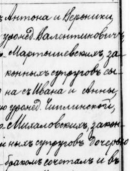 Антона и Вероники
урожд. Валентинович
Мартышевскихъ, за-
конныхъ супруговъ сы-
на съ Ивана и Анны,
урожд. Чаплинской,
Милановскихъ, закон-
ныхъ супруговъ дочерью
бракомъ сочеталъ и въ